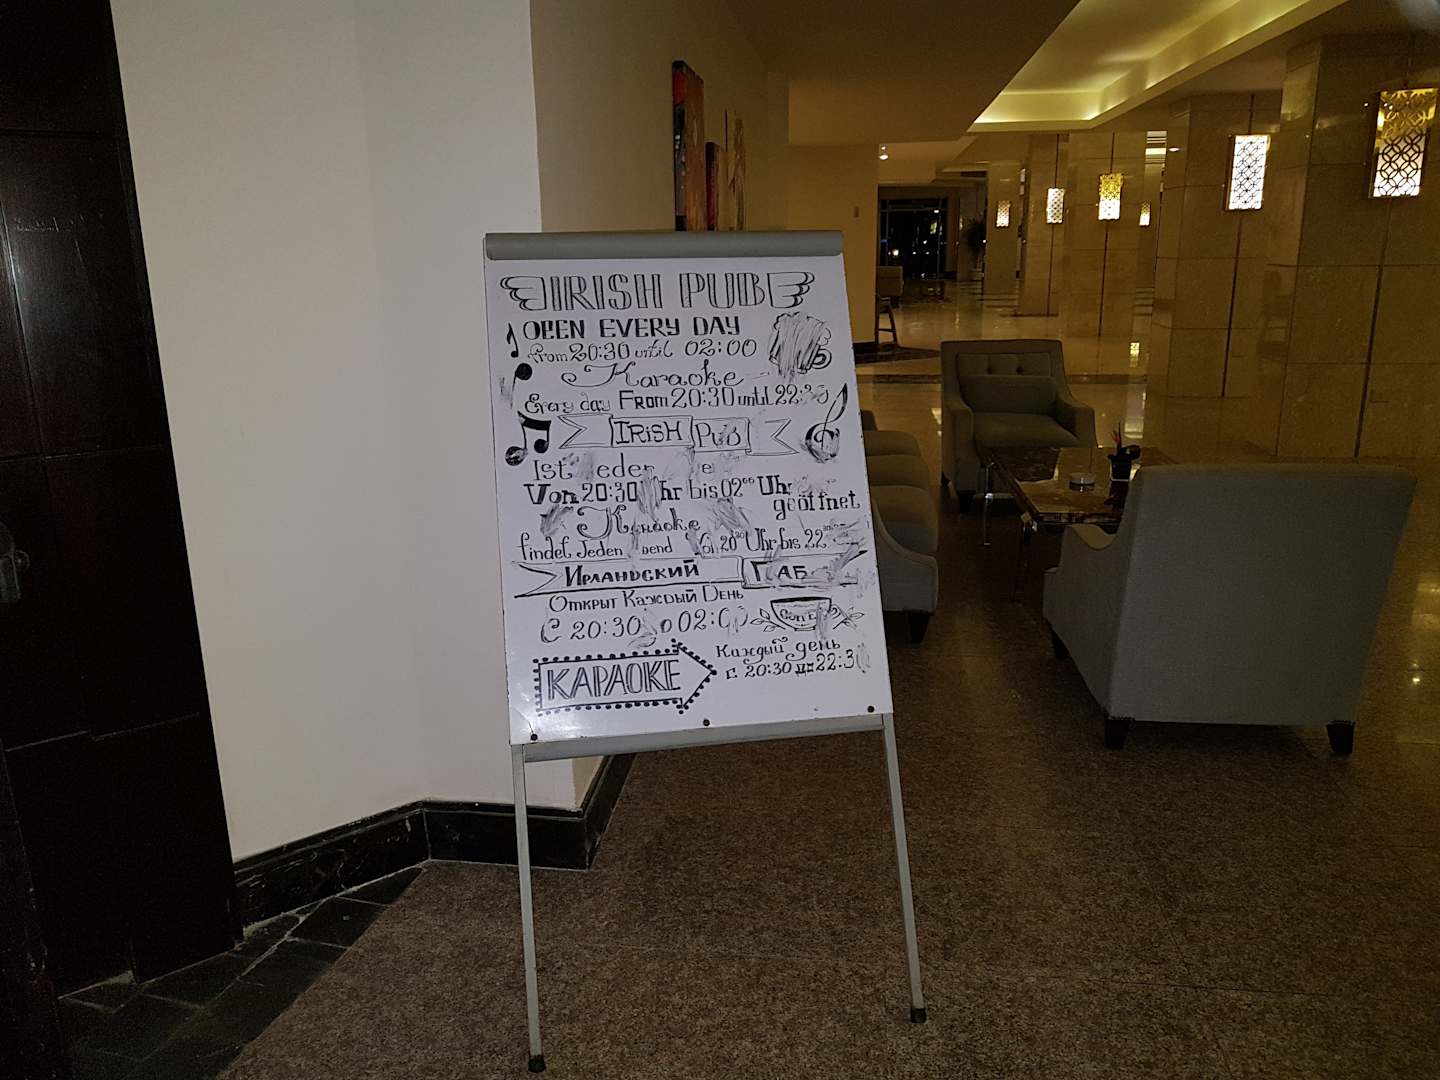 IRISH PUB
OPEN EVERY DAY
from 20:30 until 02:00
Karaoke
Every day From 20:30 until 22:30
IRISH PUB
Ist eden
Von 20:30 hr bis 02°° Uhr
geöffnet
Karaoke
findet Jeden bend 20³⁰ Uhr bis 22
ИРЛАНДСКИЙ ПАБ
ОТКРЫТ КАЖДЫЙ ДЕНЬ
С 20:30 до 02:00
Каждый день
КАРАОКЕ
с 20:30 до 22:30